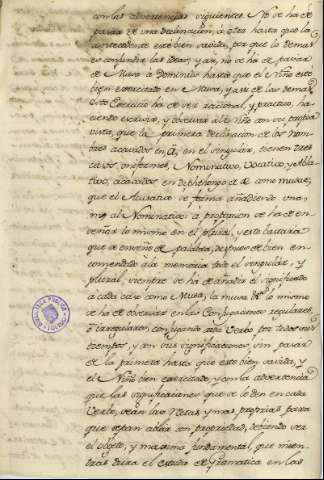 con las advertencias siguientes. No se ha de
pasar de una declinacion, á otra hasta que la
antecedente esté bien savida, por que lo demas
es confundir las ideas, y asi, no se há de pasar
de Musa á Dominus hasta que el Niño esté
bien exercitado en Musa, y asi de las demas.
Este Exercicio ha de ser racional, y practico, ha-
ciendo escrivir, y observar al Niño con su propia
vista, que la primera declinacion de los Nom-
bres acavados en A, en el singular, tienen tres
casos uniformes, Nominativo, Vocativo, y Abla-
tivo, acavados en diphthongo de æ como musæ,
que el Acusativo se forma añadiendo una
m, al Nominativo á proporcion se ha de en-
señar lo mismo en el plural, y esto bastará
que se enseñe de palabra, despues de bien en-
comendado á la memoria todo el singular, y
plural, siempre se ha de añadir el significado
á cada caso como Musa, la musa &c. lo mismo
se ha de observar en las Conjugaciones regulares,
é irregulares, conjugando cada Verbo por todos sus
tiempos, y con sus significaciones, sin pasar
de la primera hasta que esté bien savida, y
el Niño bien exercitado, y con la advertencia
que las significaciones que se le den en cada
Verbo, sean las Netas y mas proprias para
que sepan ablar con propriedad, deviendo ser
el objeto, y maxima fundamental, que mien-
tras dura el estudio de Gramatica en las
BIBLIOTECA PUBLICA